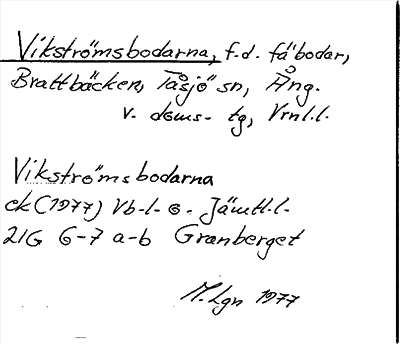 Vikströmsbodarna, f.d. fäbodar,
Brattbäcken, Tåsjö sn, Ång.
v. doms- tg, Vrnl.l.
Vikströmsbodarna
ek (1977) Vb-l- o. Jämtl.l.
21G 6-7 a-b Granberget
M.Lgn 1977